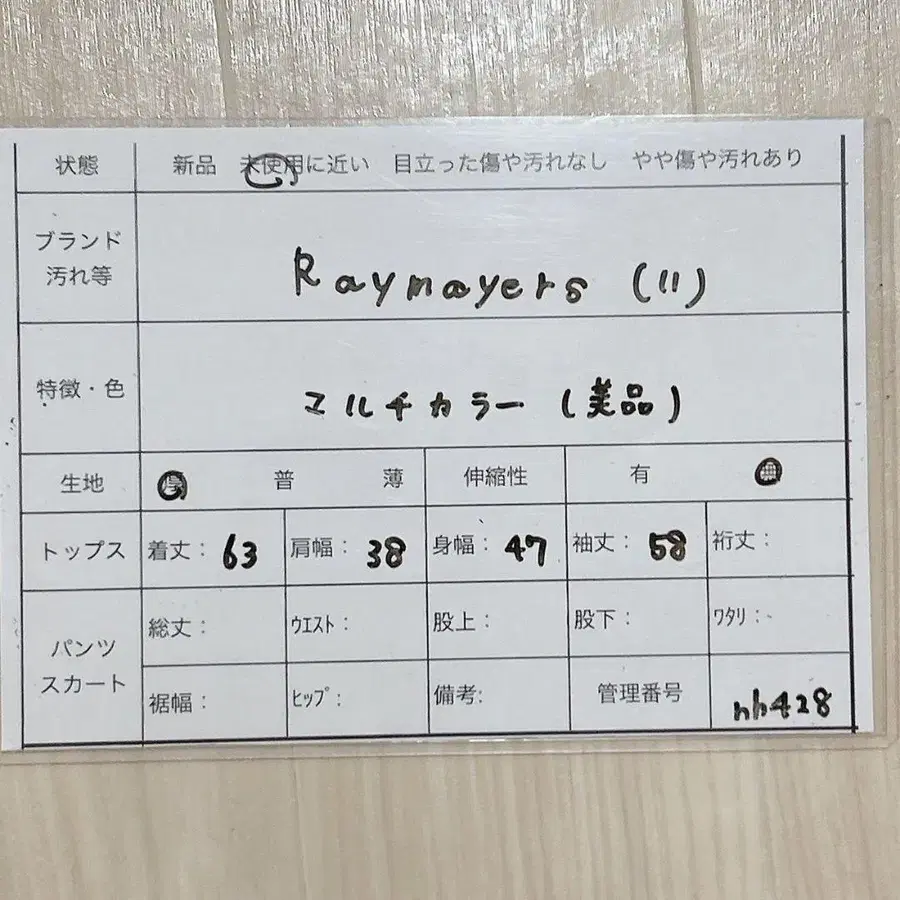 状態 新品 未使用に近い 目立った傷や汚れなし やや傷や汚れあり
ブランド
汚れ等
Raymayers (11)
特徴・色
マルチカラー (美品)
生地 厚 普 薄 伸縮性 有 無
トップス 着丈: 63 肩幅: 38 身幅: 47 袖丈: 58 裄丈:
パンツ
スカート
総丈: ウエスト: 股上: 股下: ワタリ:
裾幅: ヒップ: 備考: 管理番号 nh428